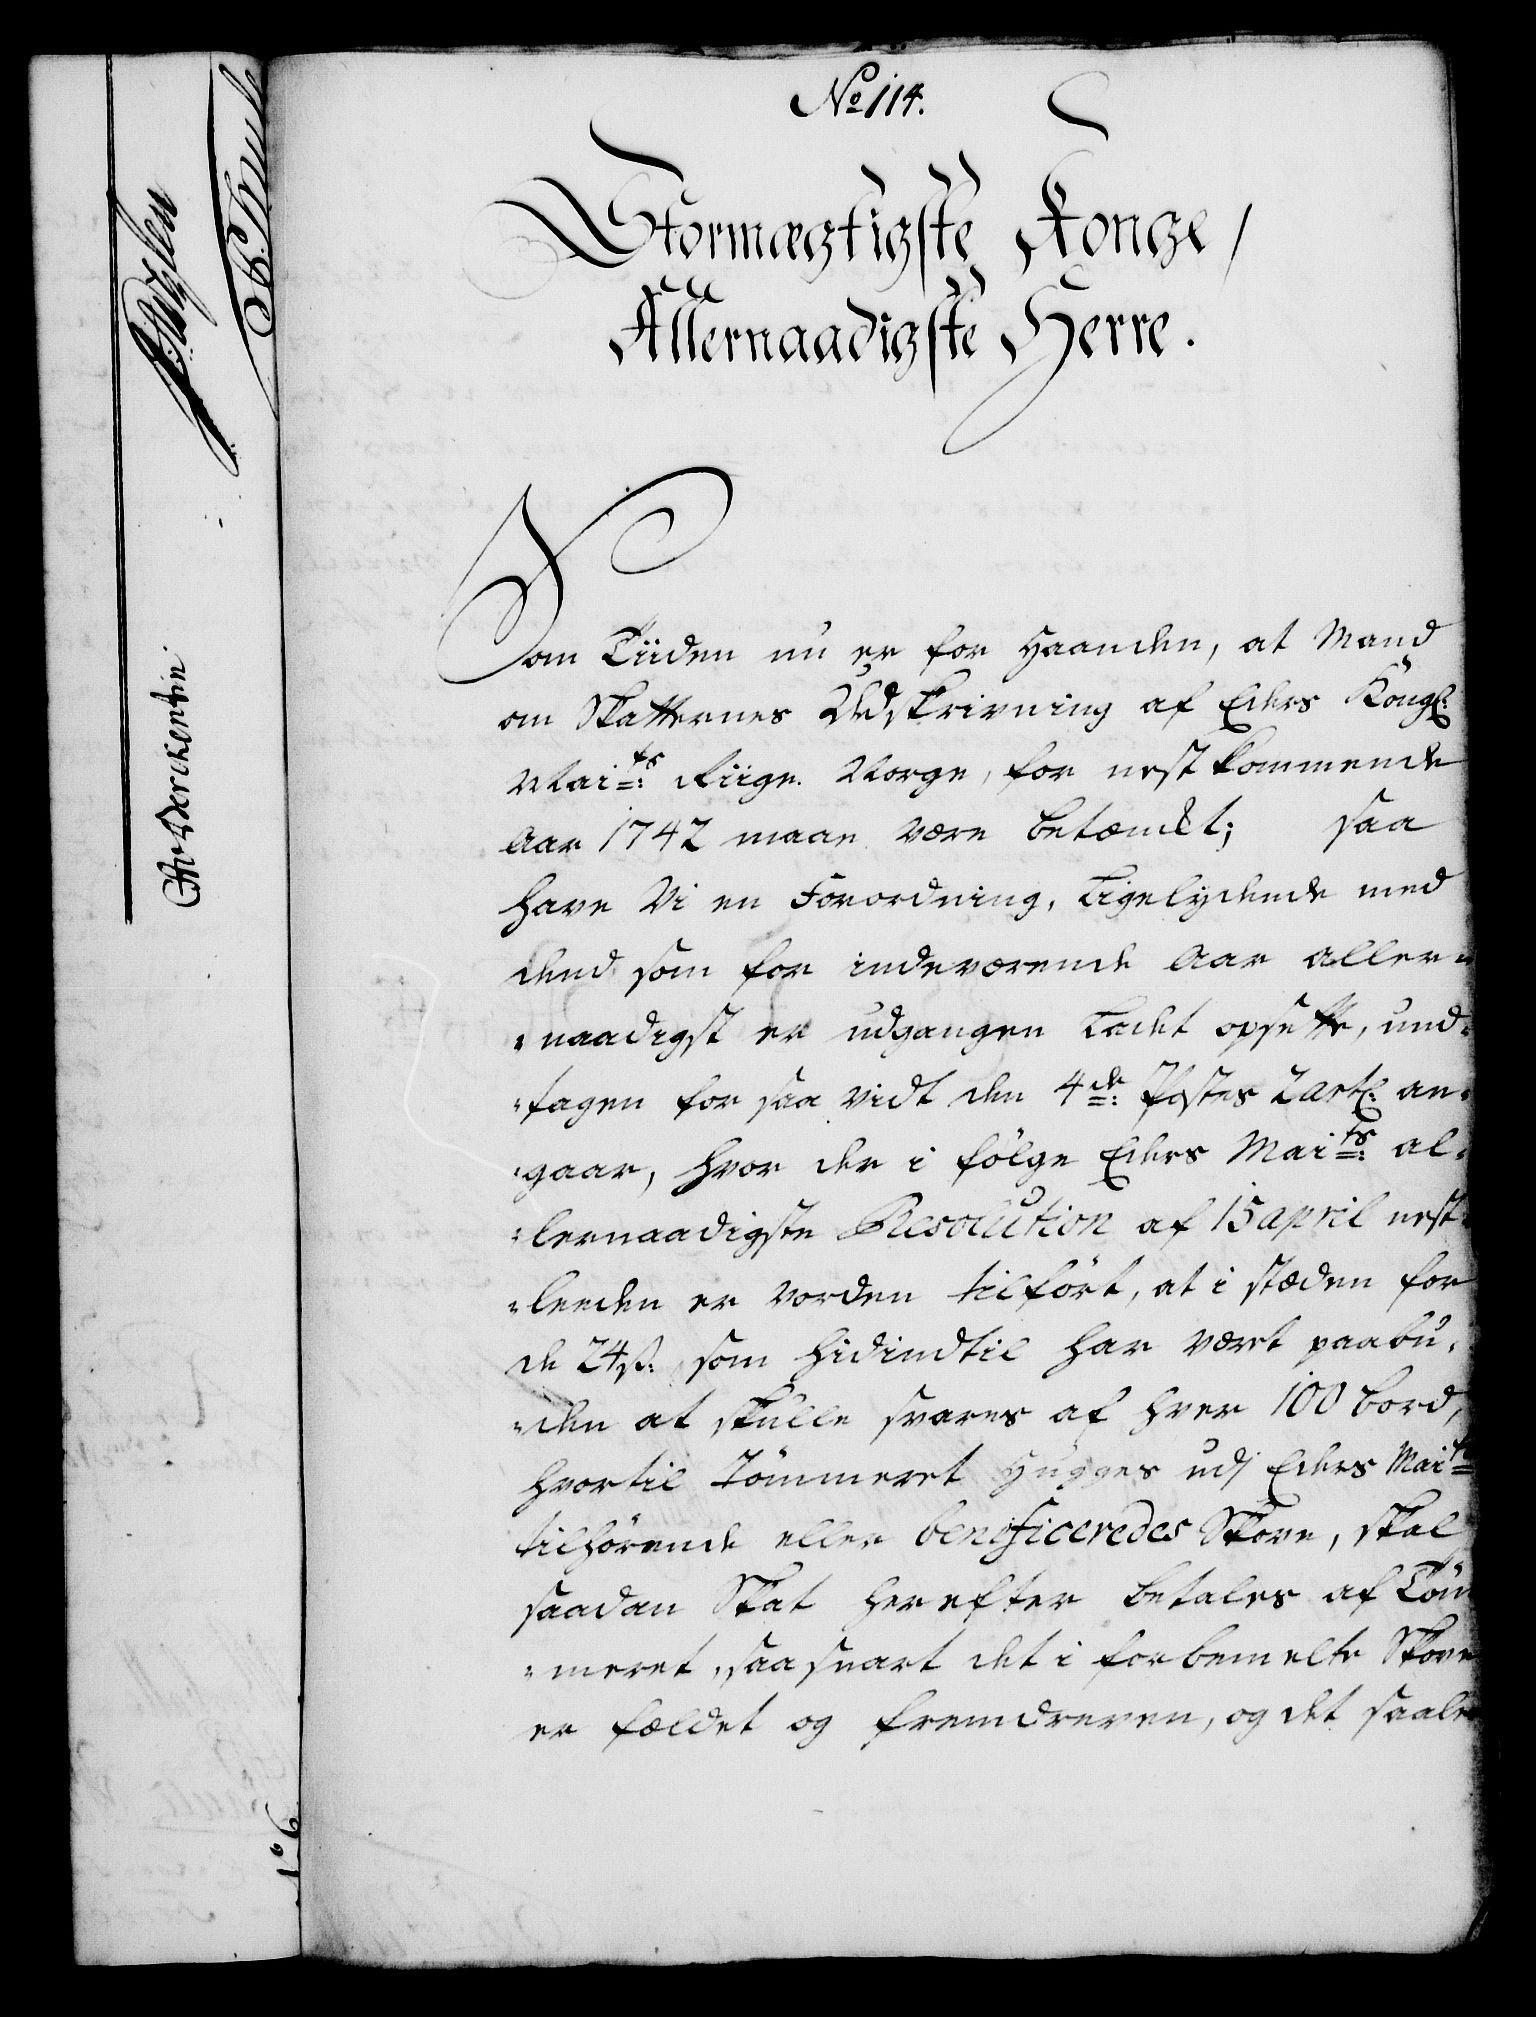 No 114.
Stormægtigste Konge,
Allernaadigste Herre.
Som Tiiden nu er for Haanden, at Mand
om Skatternes Udskrivning af Eders Kongl:
Mai=ts: Riige Norge, for nestkommende
Aar 1742 maae være betænkt; saa
have Vi en Forordning, Ligelydende med
dend som for indeværende Aar aller=
=naadigst er udgangen ladet opsette, und=
=tagen for saa vidt den 4de: Postes Lartl: an=
=gaar, hvor der i følge Eders Mai=ts: al=
=lernaadigste Resolution af 15 april nest=
=leeden er vorden tilført, at i stæden for
de 24ß: som hidindtil har vært paabu=
=den at skulle svares af hver 100 bord,
hvortil Tømmeret Hugges udj Eders Mai=ts
tilhørende eller beneficeredes Skove, skal
saadan Skat herefter betales af Tøm
=meret, saasnart det i forbemelte Skove
er fældet og fremdreven, og det saale
No 6